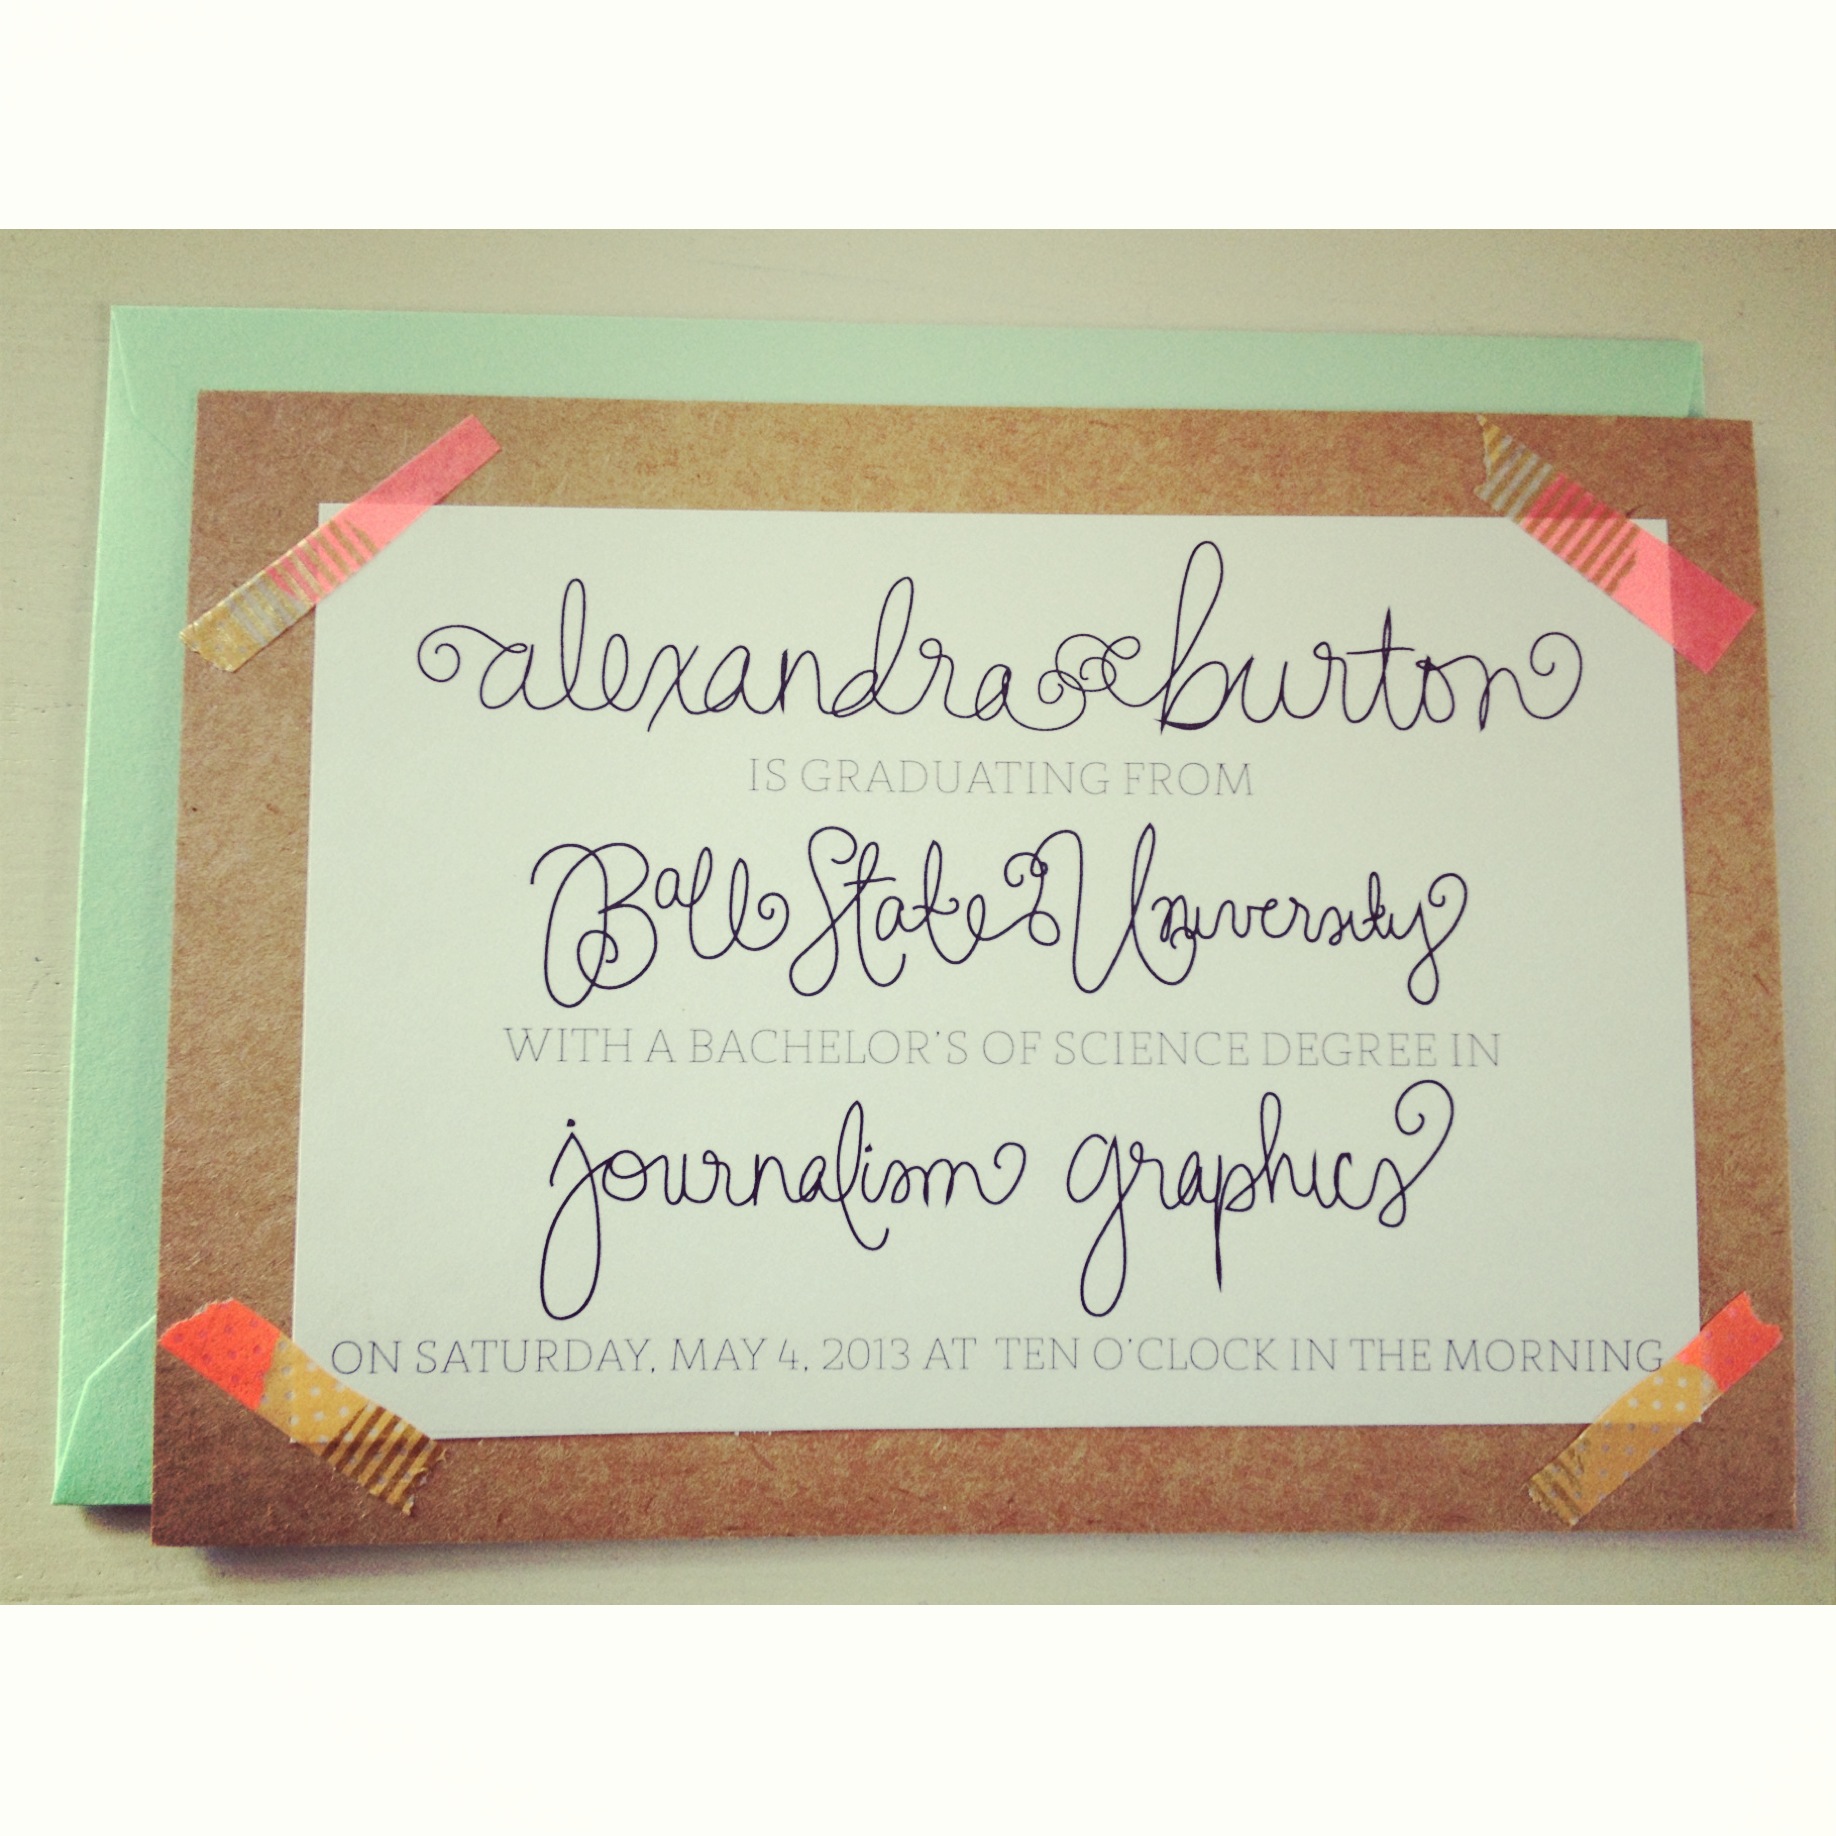 alexandra burton
IS GRADUATING FROM
Ball State University
WITH A BACHELOR'S OF SCIENCE DEGREE IN
journalism graphics
ON SATURDAY, MAY 4, 2013 AT TEN O'CLOCK IN THE MORNING